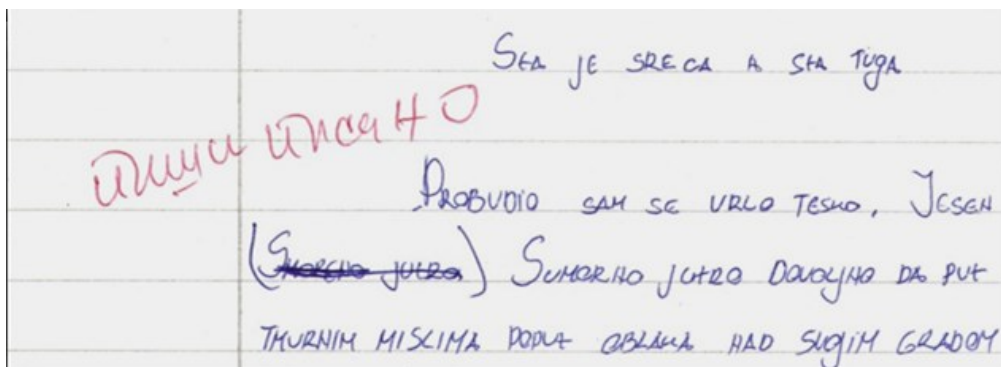 STA JE SRECA A STA TUGA
пиши писано
PROBUDIO SAM SE VRLO TESKO. JESEN
( JUTRO) SUMORNO JUTRO DOVOLJNO DA PUT
TMURNIM MISLIMA POPUT OBLAKA NAD GRADOM